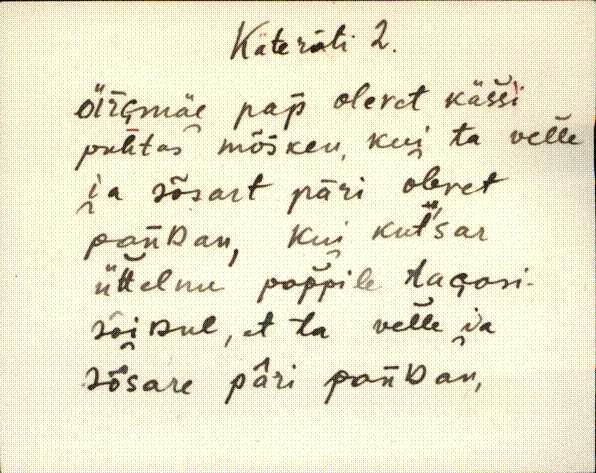 Käteräti 2.
Äirgmäe pap̄ olevet käs̆s̆i
puhtas mõšken, kui ta velle
ja sõsart päri olevet
pan̄ᴅan, kui kut̆sar
üttelnu pap̆pile tagasi-
sõiᴅul, et ta velle ja
sõsare päri pan̄ᴅan,